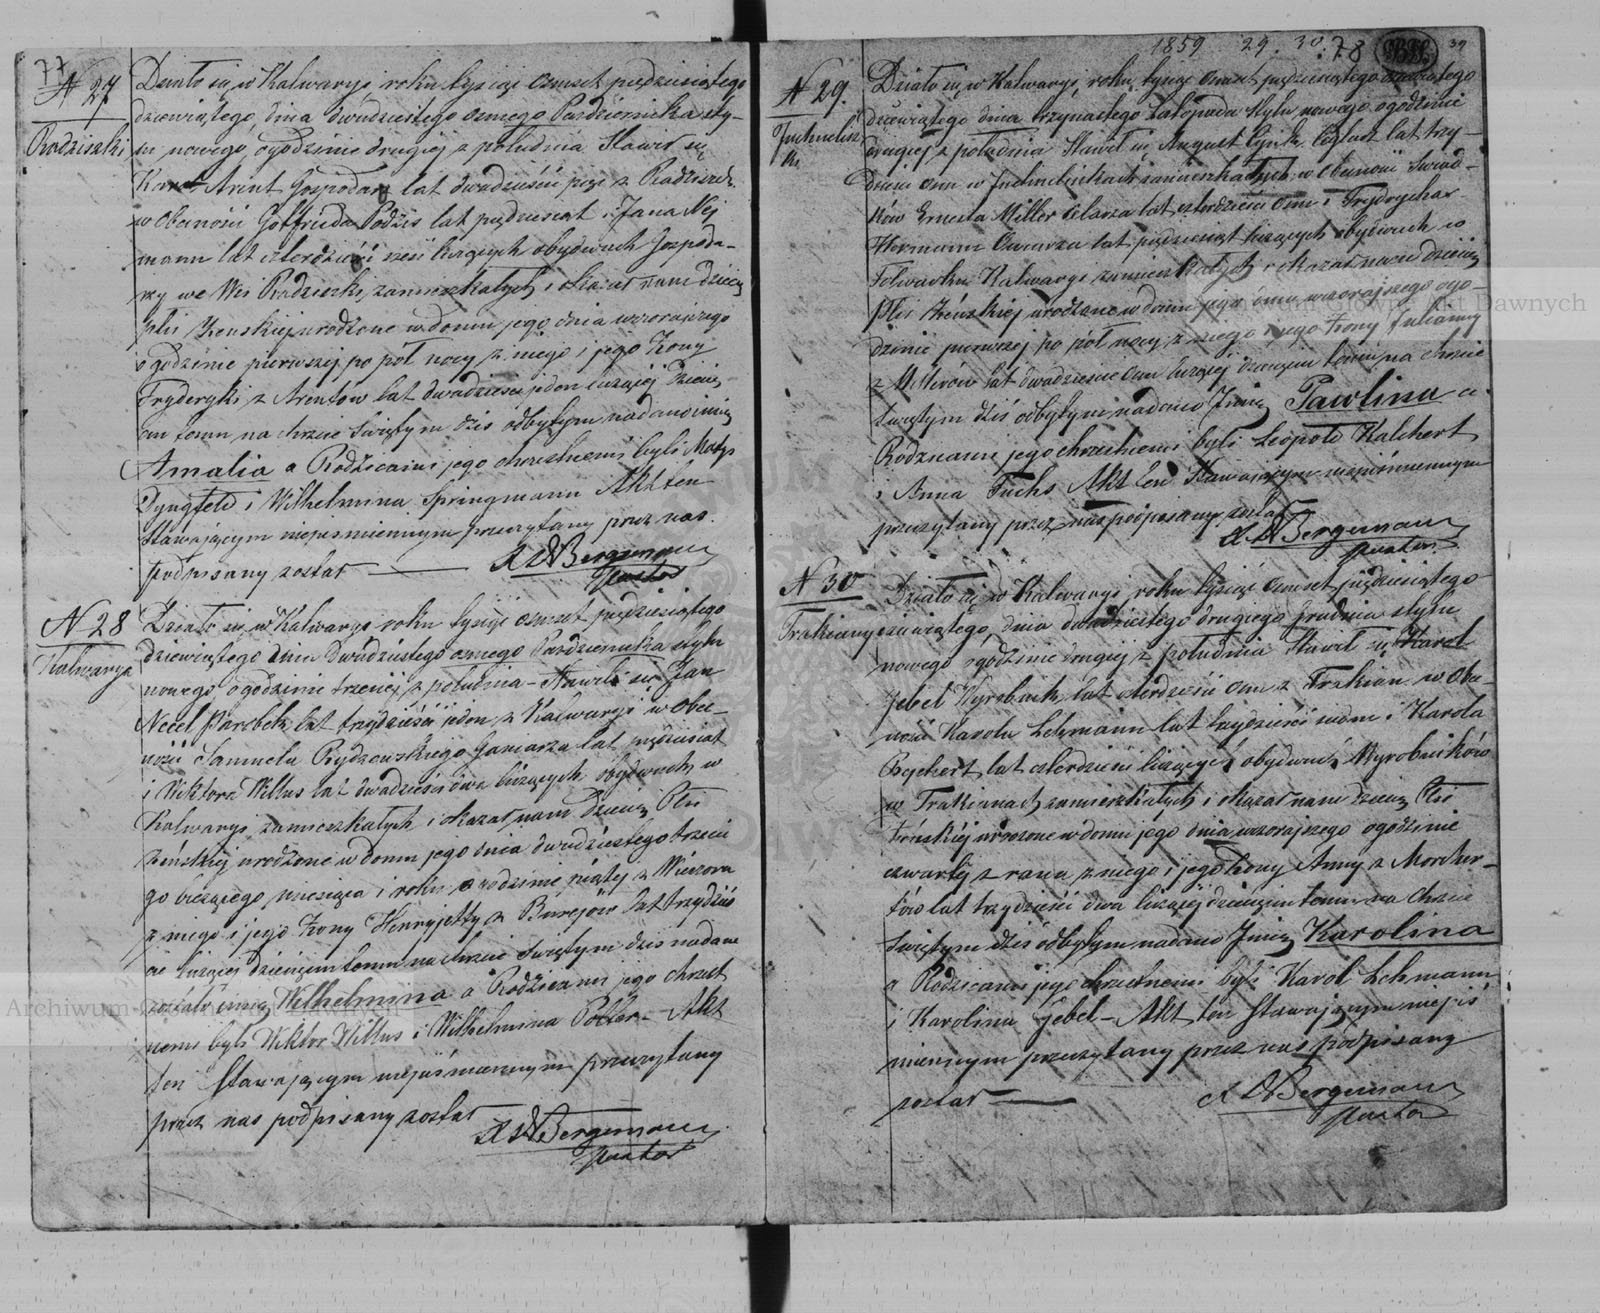 77
N 27
Radziszki
Działo się w Kalwaryi roku tysiąc osmset pięćdziesiątego
dziewiątego, dnia dwudziestego osmego Pazdziernika sty-
lu nowego, o godzinie drugiej z południa Stawił się
Karol Arent Gospodarz lat dwadzieścia pięć z Radziszek
w Obecności Gottfrieda lat pięćdziesiąt i Jana Ney
mann lat czterdzieści sześć liczących obydwóch Gospoda-
rzy we Wsi Radziszki zamieszkałych i okazał nam dziecię
płci żenskiej urodzone w domu jego dnia wczorajszego
o godzinie pierwszej po pół nocy z niego i jego Żony
Fryderyki z Arentów lat dwadzieścia jeden liczącej Dziecię-
ciu temu na chrzcie Swiętym dziś odbytym nadano imię
Amalia a Rodzicami jego chrzestnemi byli Matys
Dyngfeld i Wilhelmina Springmann Akt ten
Stawającym niepismiennym przeczytany przez nas
podpisany został
Bergemann
Pastor
N 28
Kalwarya
Działo się w Kalwaryi roku tysiąc osmset pięćdziesiątego
dziewiątego dnia Dwudziestego osmego Pazdziernika stylu
nowego o godzinie trzeciej z południa - Stawił się Jan
Necel Parobek lat trzydzieści jeden z Kalwaryi w Obec-
ności Samuela Rydzewskiego Garncarza lat pięćdziesiąt
i Wiktora Wittus lat dwadzieścia dwa liczących obydwóch w
Kalwaryi zamieszkałych i okazał nam dziecię Płci
żeńskiej urodzone w domu jego dnia dwudziestego trzeci
go bieżącego miesiąca i roku o godzinie piątej z Wieczora
z niego i jego Żony Henryjetty z lat trzydzieś
ci liczącej dziecięciu temu na chrzcie Swiętym dziś nadane
zostało imię Wilhelmina a Rodzicami jego chrzest
nemi byli Wiktor Wittus i Wilhelmina - Akt
ten Stawającym niepiśmiennym przeczytany
przez nas podpisany został
Bergemann
Pastor
1859 29. 30. 78
39
N 29.
Działo się w Kalwaryi, roku tysiąc Osmset pięćdziesiątego
dziewiątego dnia trzynastego Listopada stylu nowego o godzinie
drugiej z południa Stawił się August lat trzy-
dzieści osm w zamieszkałych w obecności Swiad-
ków Ernesta Miller lat czterdzieści osm i Frydrycha
Hermann Owczarza lat pięćdziesiąt liczących obydwóch w
Folwarku Kalwaryi zamieszkałych i okazał nam dziecię
Płci Żeńskiej urodzone w domu jego dnia wczorajszego o go-
dzinie pierwszej po pół nocy z niego i jego Żony Julianny
z lat dwadzieścia osm liczącej dziecięciu temu na chrzcie
świętym dziś odbytym nadano Imię Pawlina a
Rodzicami jego chrzestnemi byli Leopold Kalchert
i Anna Fuchs Akt ten Stawającym niepiśmiennym
przeczytany przez nas podpisany został
Bergemann
Pastor
N 30
Trakiany
Działo się w Kalwaryi roku tysiąc Osmset pięćdziesiątego
dziewiątego, dnia dwudziestego drugiego Grudnia stylu
nowego o godzinie drugiej z południa Stawił się Karol
Jebel Wyrobnik, lat czterdzieści osm z Trakian w Obec-
ności Karola Lehmann lat trzydzieści siedm i Karola
lat czterdzieści liczących obydwóch Wyrobników
w Trakianach zamieszkałych i okazał nam dziecię Płci
Żeńskiej urodzone w domu jego dnia wczorajszego o godzinie
czwartej z rana z niego i jego Żony Anny z
lat trzydzieści dwa liczącej dziecięciu temu na Chrzcie
Swiętym dziś odbytym nadano Imię Karolina
a Rodzicami jego chrzestnemi byli Karol Lehmann
i Karolina Jebel - Akt ten Stawającym niepiś
miennym przeczytany przez nas podpisany
został
Bergemann
Pastor